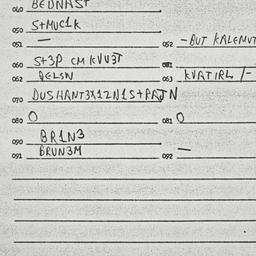 040 BEDNAST
050 S+MUC1K
051 — 052 -BUT KALEMUT
060 S+3P CM KVU3T 061
062 QELSW 063 KVATIRL /-
070 DUSHANT3X12N1S+PAJN
080 O 081 O
090 BR1N3
091 BRUN3M 092 —